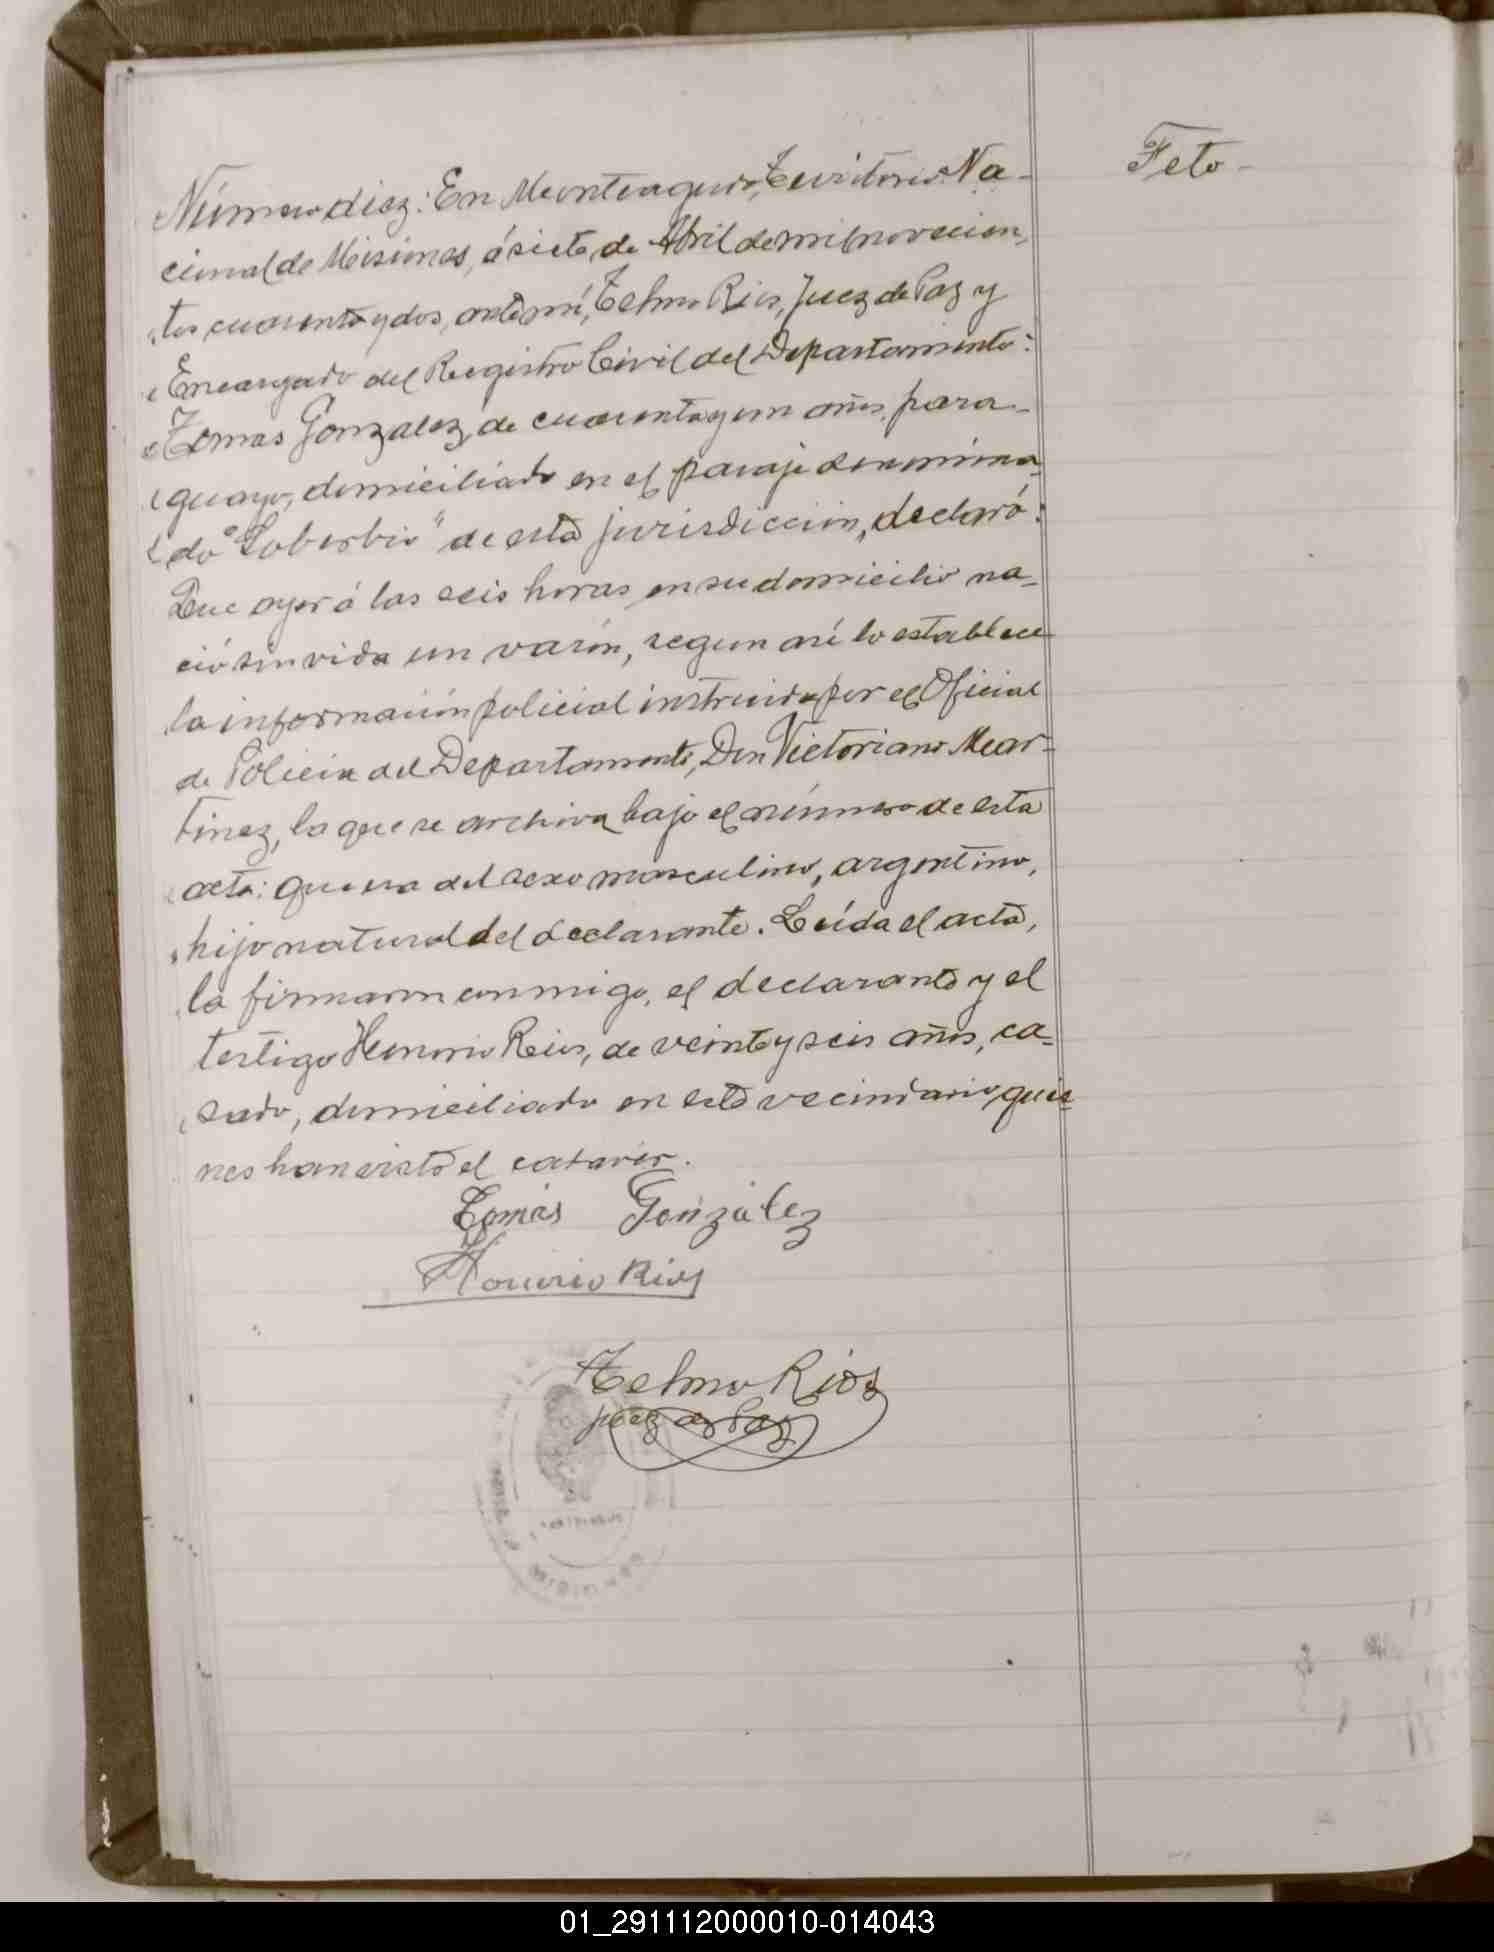 Feto-
Número diez: En Monteagudo, Territorio Na-
cional de Misiones, á siete de Abril de mil novecien-
tos cuarenta y dos, ante mí, Telmo Rios, Juez de Paz y
Encargado del Registro Civil del Departamento:
Tomas Gonzalez, de cuarenta y un años, para-
guayo, domiciliado en el paraje denomina-
do "Soberbio" de esta jurisdicción, declaró:
Que ayer á las seis horas en su domicilio na-
ció sin vida un varón, segun así lo establece
la información policial instruida por el Oficial
de Policia del Departamento, Don Victoriano Mar-
tinez, la que se archiva bajo el número de esta
acta: que era del sexo masculino, argentino,
hijo natural del declarante. Leída el acta,
la firmaron conmigo, el declarante y el
testigo Honorio Rios, de veinte y seis años, ca-
sado, domiciliado en este vecindario, quie-
nes han visto el cadaver.
Tomás González
Honorio Rios
Telmo Rios
Juez de Paz
01_291112000010-014043